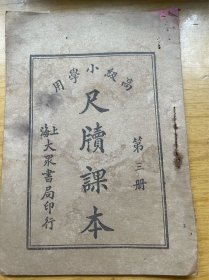 高級小學用
尺牘課本
第三册
上海大眾書局印行